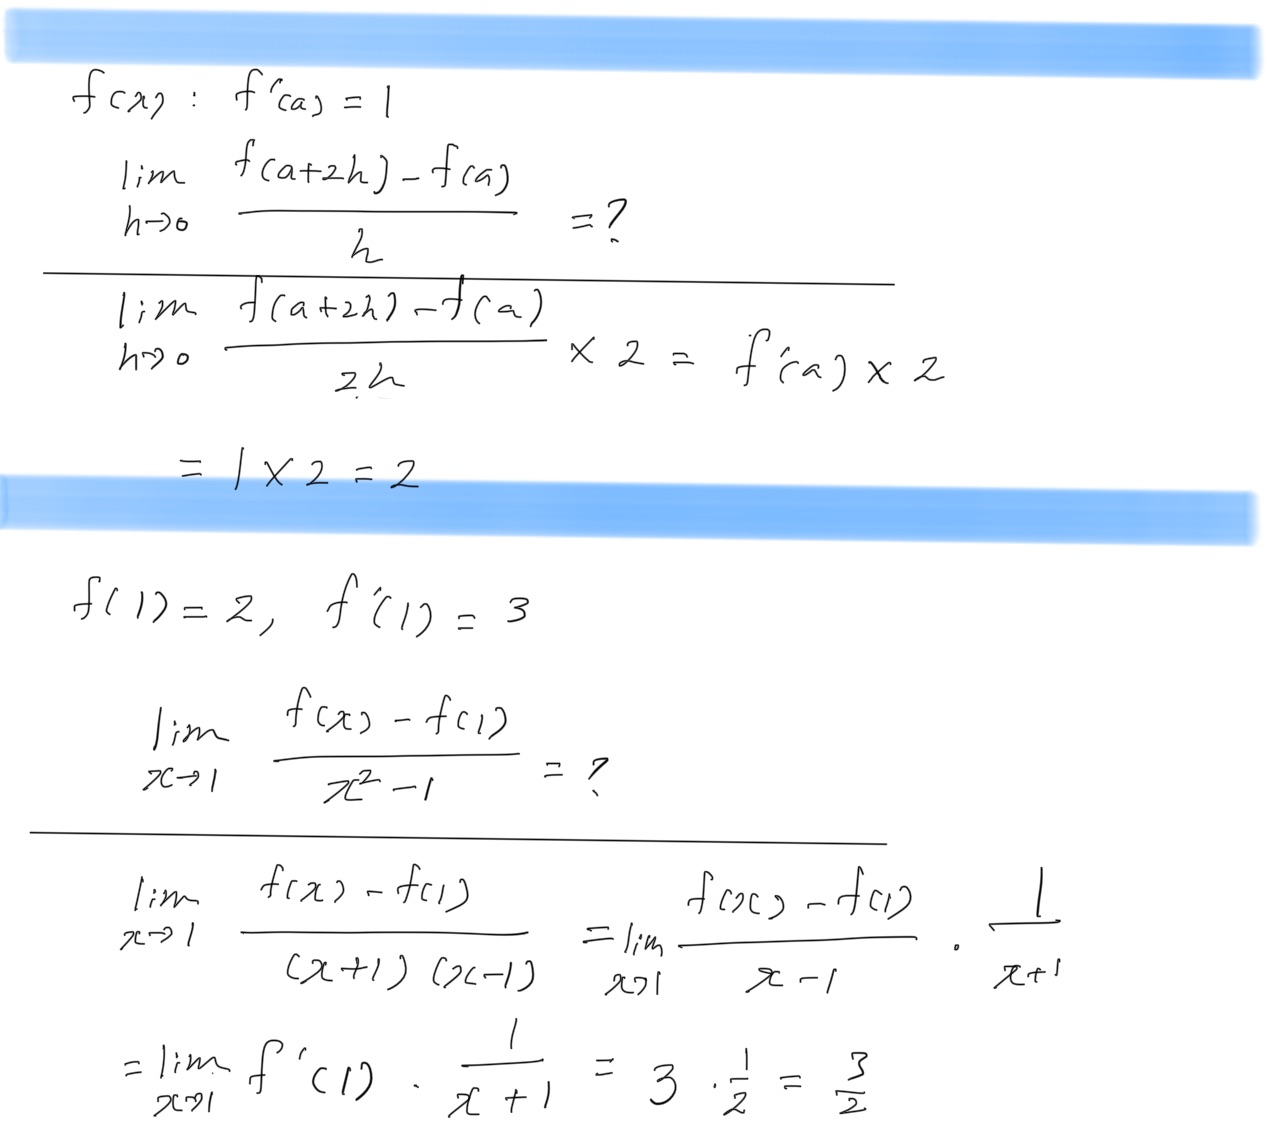 f(x) : f'(a) = 1
lim h→0 (f(a+2h) - f(a)) / h = ?
lim h→0 (f(a+2h) - f(a)) / 2h × 2 = f'(a) × 2
= 1 × 2 = 2
f(1) = 2, f'(1) = 3
lim x→1 (f(x) - f(1)) / (x² - 1) = ?
lim x→1 (f(x) - f(1)) / ((x+1)(x-1)) = lim x→1 (f(x) - f(1)) / (x - 1) · 1 / (x+1)
= lim x→1 f'(1) · 1 / (x+1) = 3 · 1/2 = 3/2